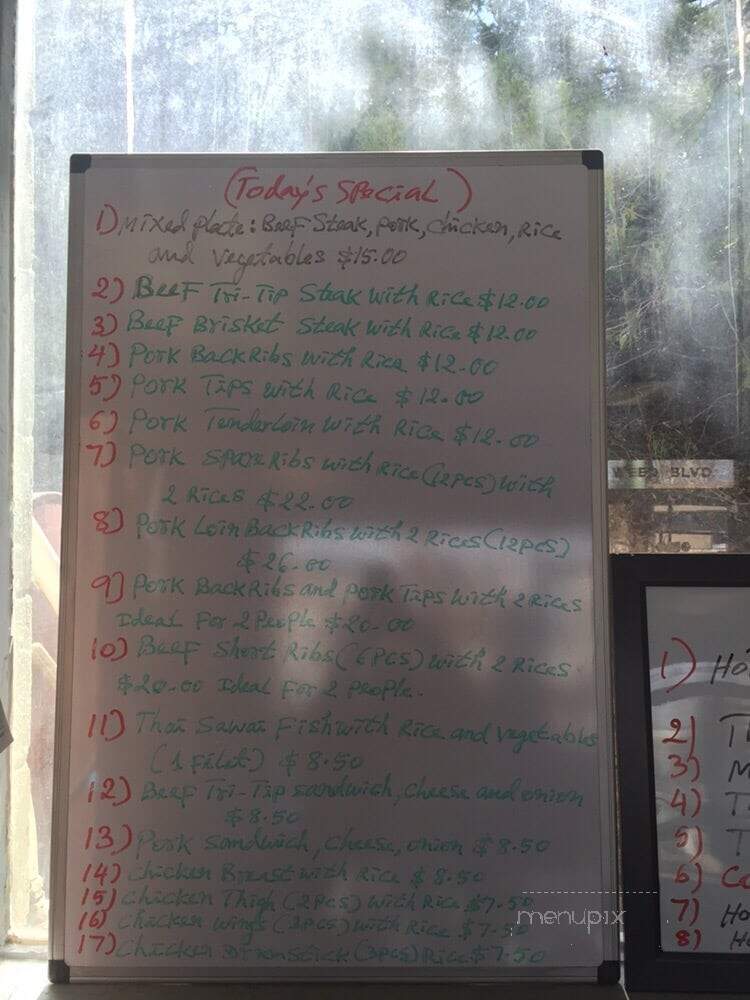 (Today's Special)
1) Mixed plate: Beef Steak, pork, chicken, Rice
and vegetables $15.00
2) Beef Tri-Tip Steak with Rice $12.00
3) Beef Brisket Steak with Rice $12.00
4) Pork Back Ribs with Rice $12.00
5) Pork Tips with Rice $12.00
6) Pork Tenderloin with Rice $12.00
7) Pork Spare Ribs with Rice (12pcs) with
2 Rices $22.00
8) Pork Loin Back Ribs with 2 Rices (12pcs)
$26.00
9) Pork Back Ribs and pork Tips with 2 Rices
Ideal For 2 People $20.00
10) Beef Short Ribs (6pcs) with 2 Rices
$20.00 Ideal For 2 People.
11) Thai Sawai Fish with Rice and vegetables
(1 Filet) $8.50
12) Beef Tri-Tip sandwich, cheese and onion
$8.50
13) Pork sandwich, cheese, onion $8.50
14) Chicken Breast with Rice $8.50
15) Chicken Thigh (2pcs) with Rice $7.50
16) Chicken wings (3pcs) with Rice $7.50
17) Chicken Drumstick (3pcs) Rice $7.50
WEED BLVD
1) Ho
2) T
3) M
4) T
5) T
6) Co
7) Ho
8) H
menupix